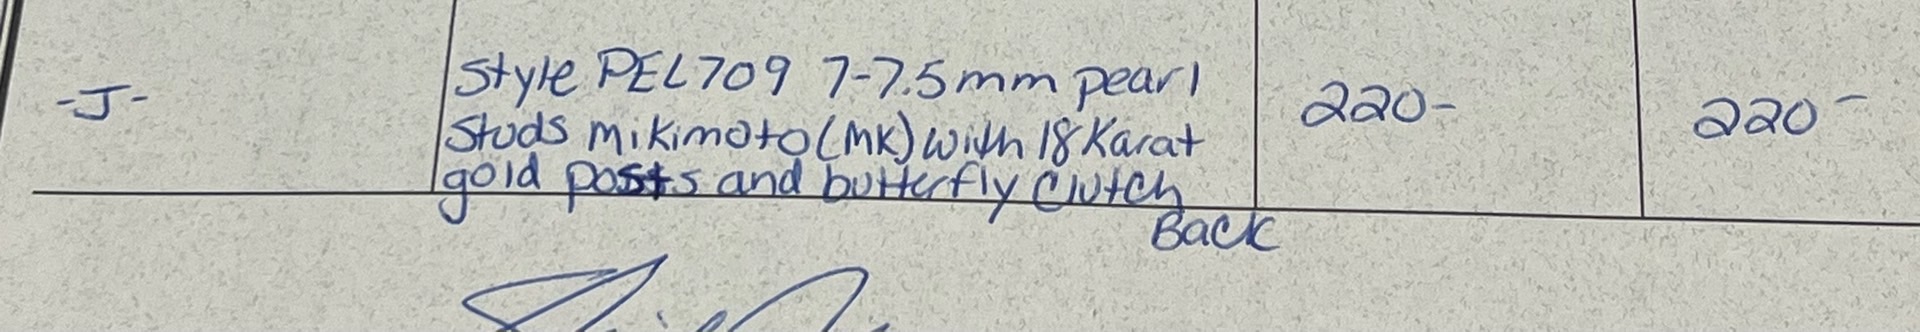 -J-
Style PEL709 7-7.5mm pearl
studs mikimoto (MK) with 18 Karat
gold posts and butterfly clutch
Back
220-
220-